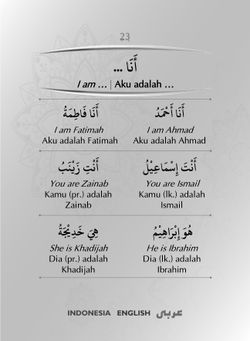 23
أَنَا ...
I am ... | Aku adalah ...
أَنَا أَحْمَدُ
I am Ahmad
Aku adalah Ahmad
أَنَا فَاطِمَةُ
I am Fatimah
Aku adalah Fatimah
أَنْتَ إِسْمَاعِيْلُ
You are Ismail
Kamu (lk.) adalah
Ismail
أَنْتِ زَيْنَبُ
You are Zainab
Kamu (pr.) adalah
Zainab
هُوَ إِبْرَاهِيْمُ
He is Ibrahim
Dia (lk.) adalah
Ibrahim
هِيَ خَدِيْجَةُ
She is Khadijah
Dia (pr.) adalah
Khadijah
INDONESIA ENGLISH عربي